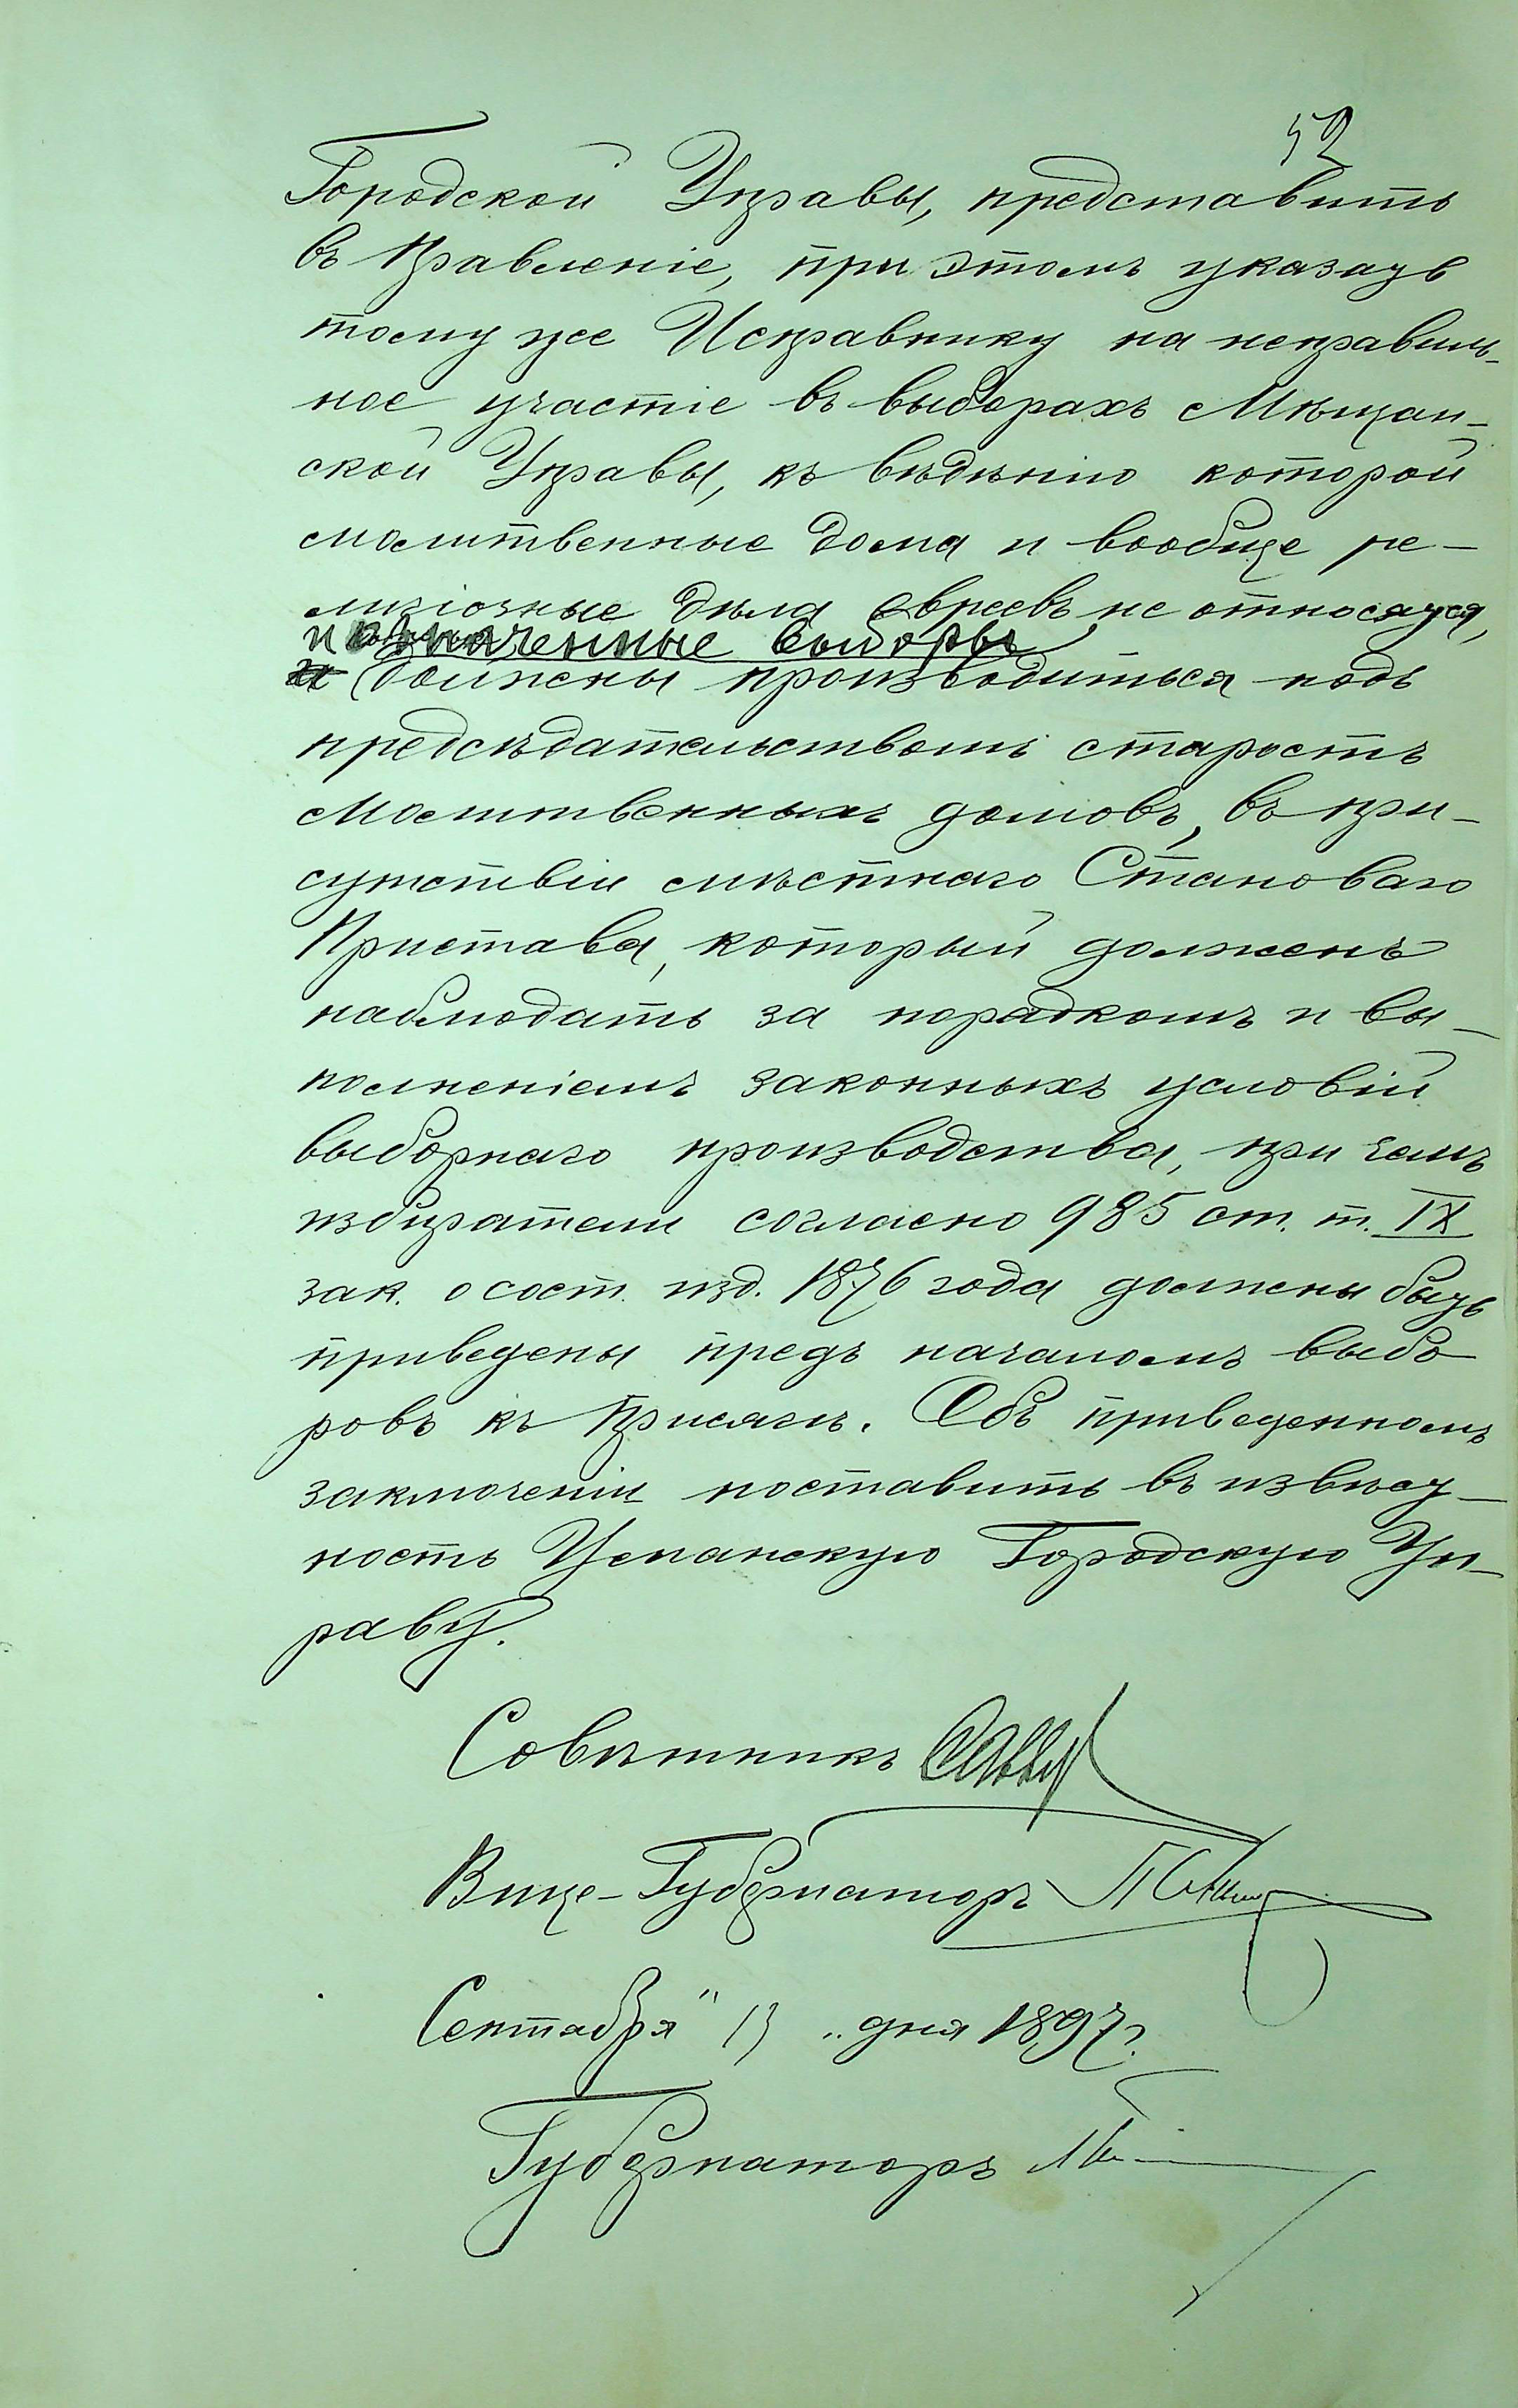 52
Городской Управы, представить
въ Правленіе, при этомъ указавъ
тому же Исправнику на неправиль-
ное участіе въ выборахъ Мѣщан-
ской Управы, къ вѣдѣнію которой
молитвенные дома и вообще ре-
лигіозные дѣла евреевъ не относятся,
и означенные выборы
должны производиться подъ
предсѣдательствомъ старостъ
молитвенныхъ домовъ, въ при-
сутствіи мѣстнаго Становаго
Пристава, который долженъ
наблюдать за порядкомъ и вы-
полненіемъ законныхъ условій
выборнаго производства, при чемъ
избиратели согласно 985 ст. т. IX
зак. о сост. изд. 1876 года должны быть
приведены предъ началомъ выбо
ровъ къ присягѣ. Объ приведенномъ
заключеніи поставить въ извѣст-
ность Уманскую Городскую Уп-
раву.
Совѣтникъ
Вице-Губернаторъ
Сентября "13" дня 1897 г.
Губернаторъ